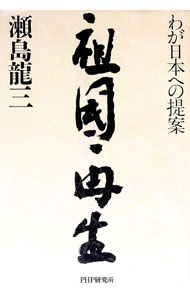 わが日本への提案
祖國再生
瀬島龍三
PHP研究所